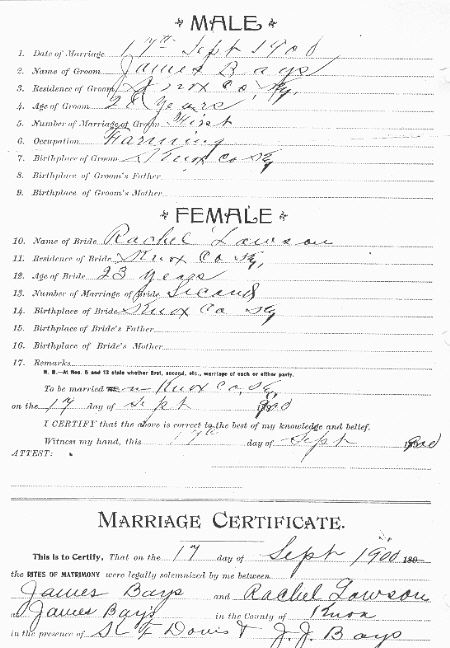 MALE
1. Date of Marriage 17th Sept 1900
2. Name of Groom James Bays
3. Residence of Groom Knox Co, Ky.
4. Age of Groom 28 Years
5. Number of Marriage of Groom First
6. Occupation Farming
7. Birthplace of Groom Knox Co Ky
8. Birthplace of Groom's Father
9. Birthplace of Groom's Mother
FEMALE
10. Name of Bride Rachel Lawson
11. Residence of Bride Knox Co Ky,
12. Age of Bride 23 years
13. Number of Marriage of Bride Second
14. Birthplace of Bride Knox Co Ky
15. Birthplace of Bride's Father
16. Birthplace of Bride's Mother
17. Remarks
N. B.—At Nos. 5 and 13 state whether first, second, etc., marriage of each or either party.
To be married in Knox Co, Ky,
on the 17 day of Sept 1900
I CERTIFY that the above is correct to the best of my knowledge and belief.
Witness my hand, this 17th day of Sept 1900
ATTEST:
MARRIAGE CERTIFICATE.
This is to Certify, That on the 17 day of Sept 1900 189
the RITES OF MATRIMONY were legally solemnized by me between
James Bays and Rachel Lawson
at James Bays in the County of Knox
in the presence of & J. J. Bays